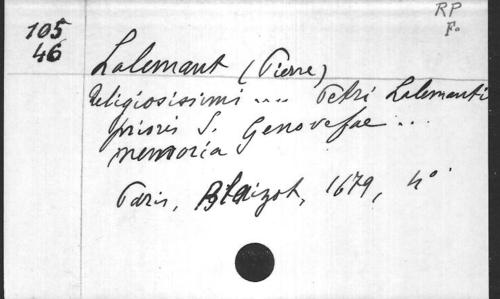 RP
F.
105
46
Lalemant (Pierre)
religiosissimi .... Petri Lalemanti
prioris S. Genovefae ...
memoria
Paris, Blaizot, 1679, 4°